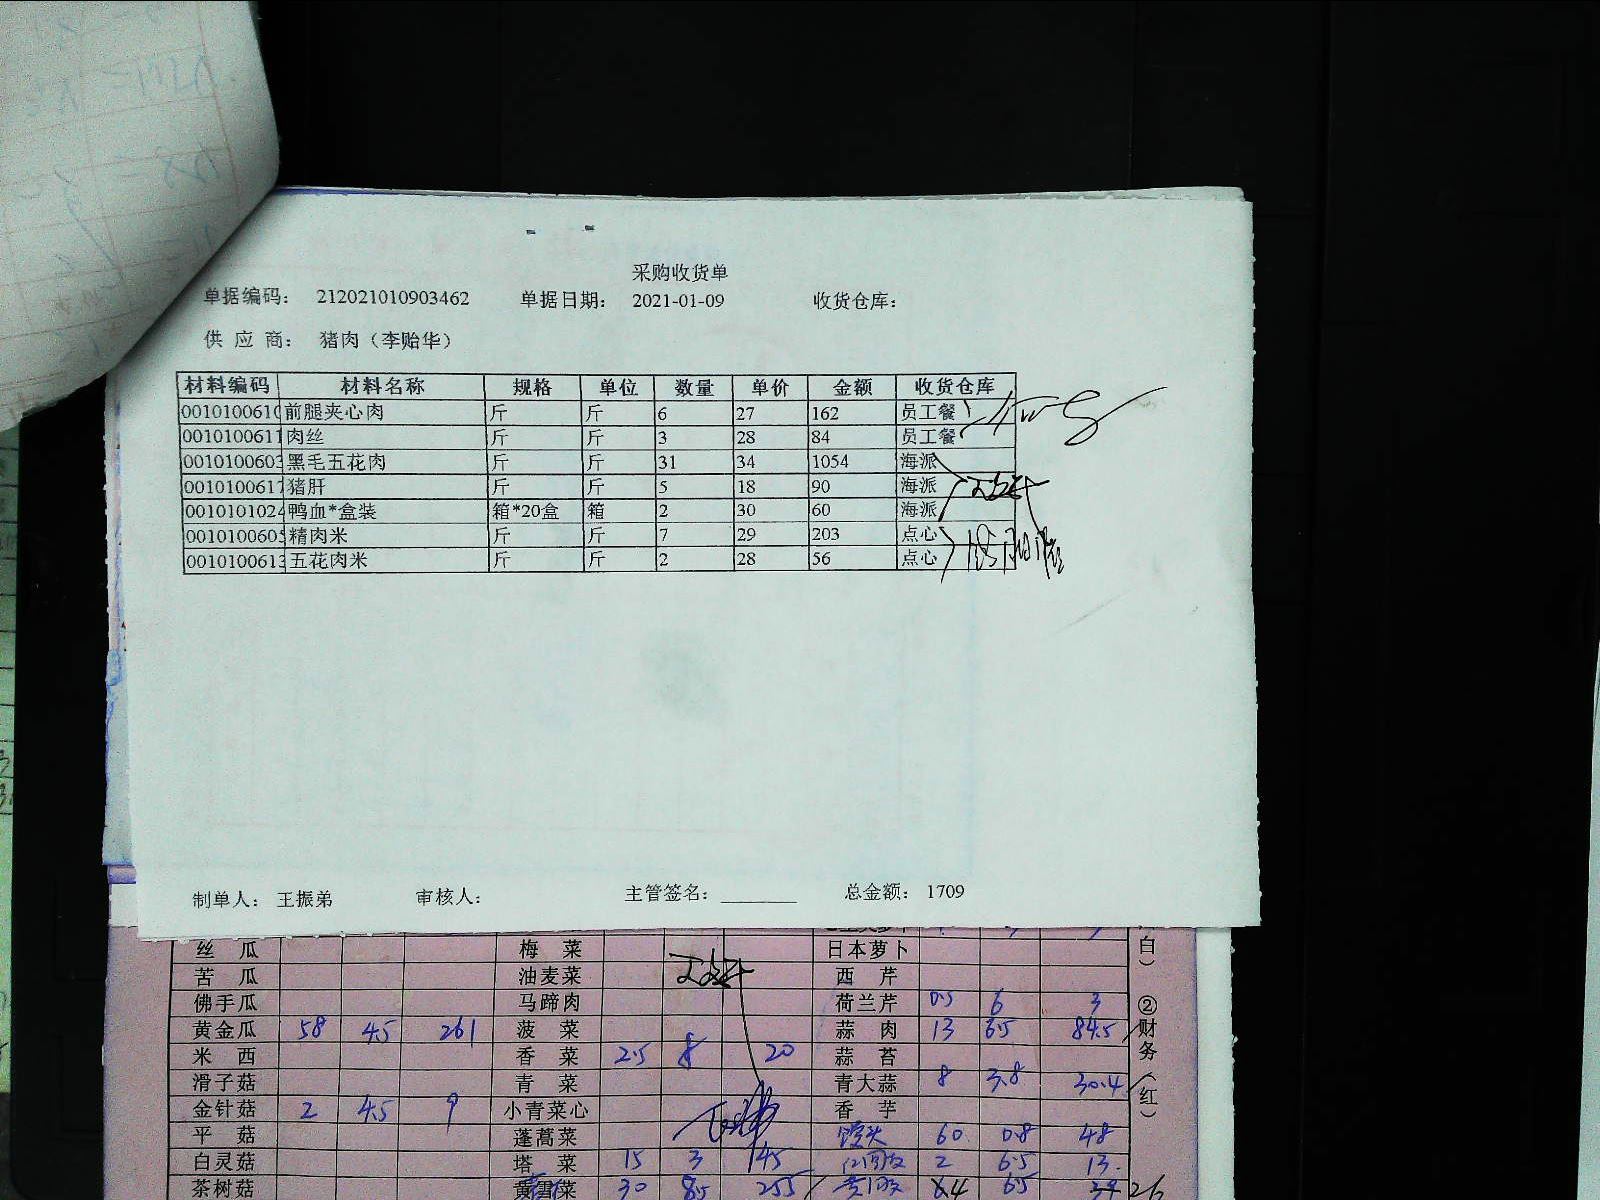 采购收货单
单据编码： 212021010903462 单据日期： 2021-01-09 收货仓库：
供 应 商： 猪肉（李贻华）
材料编码 材料名称 规格 单位 数量 单价 金额 收货仓库
0010100610 前腿夹心肉 斤 斤 6 27 162 员工餐
0010100611 肉丝 斤 斤 3 28 84 员工餐
0010100603 黑毛五花肉 斤 斤 31 34 1054 海派
0010100617 猪肝 斤 斤 5 18 90 海派
0010101024 鸭血*盒装 箱*20盒 箱 2 30 60 海派
0010100605 精肉米 斤 斤 7 29 203 点心
0010100613 五花肉米 斤 斤 2 28 56 点心
制单人： 王振弟 审核人： 主管签名：________ 总金额： 1709
丝 瓜 梅 菜 日本萝卜
苦 瓜 油麦菜 西 芹
佛手瓜 马蹄肉 荷兰芹 0.5 6 3
黄金瓜 58 4.5 261 菠 菜 蒜 肉 13 6.5 84.5
米 西 香 菜 2.5 8 20 蒜 苔
滑子菇 青 菜 青大蒜 8 3.8 30.4
金针菇 2 4.5 9 小青菜心 香 芋
平 菇 蓬蒿菜 馒头 60 0.8 48
白灵菇 塔 菜 15 3 45 2 6.5 13
茶树菇 30 8.5 255 6.5 26
白）
②财务（红）